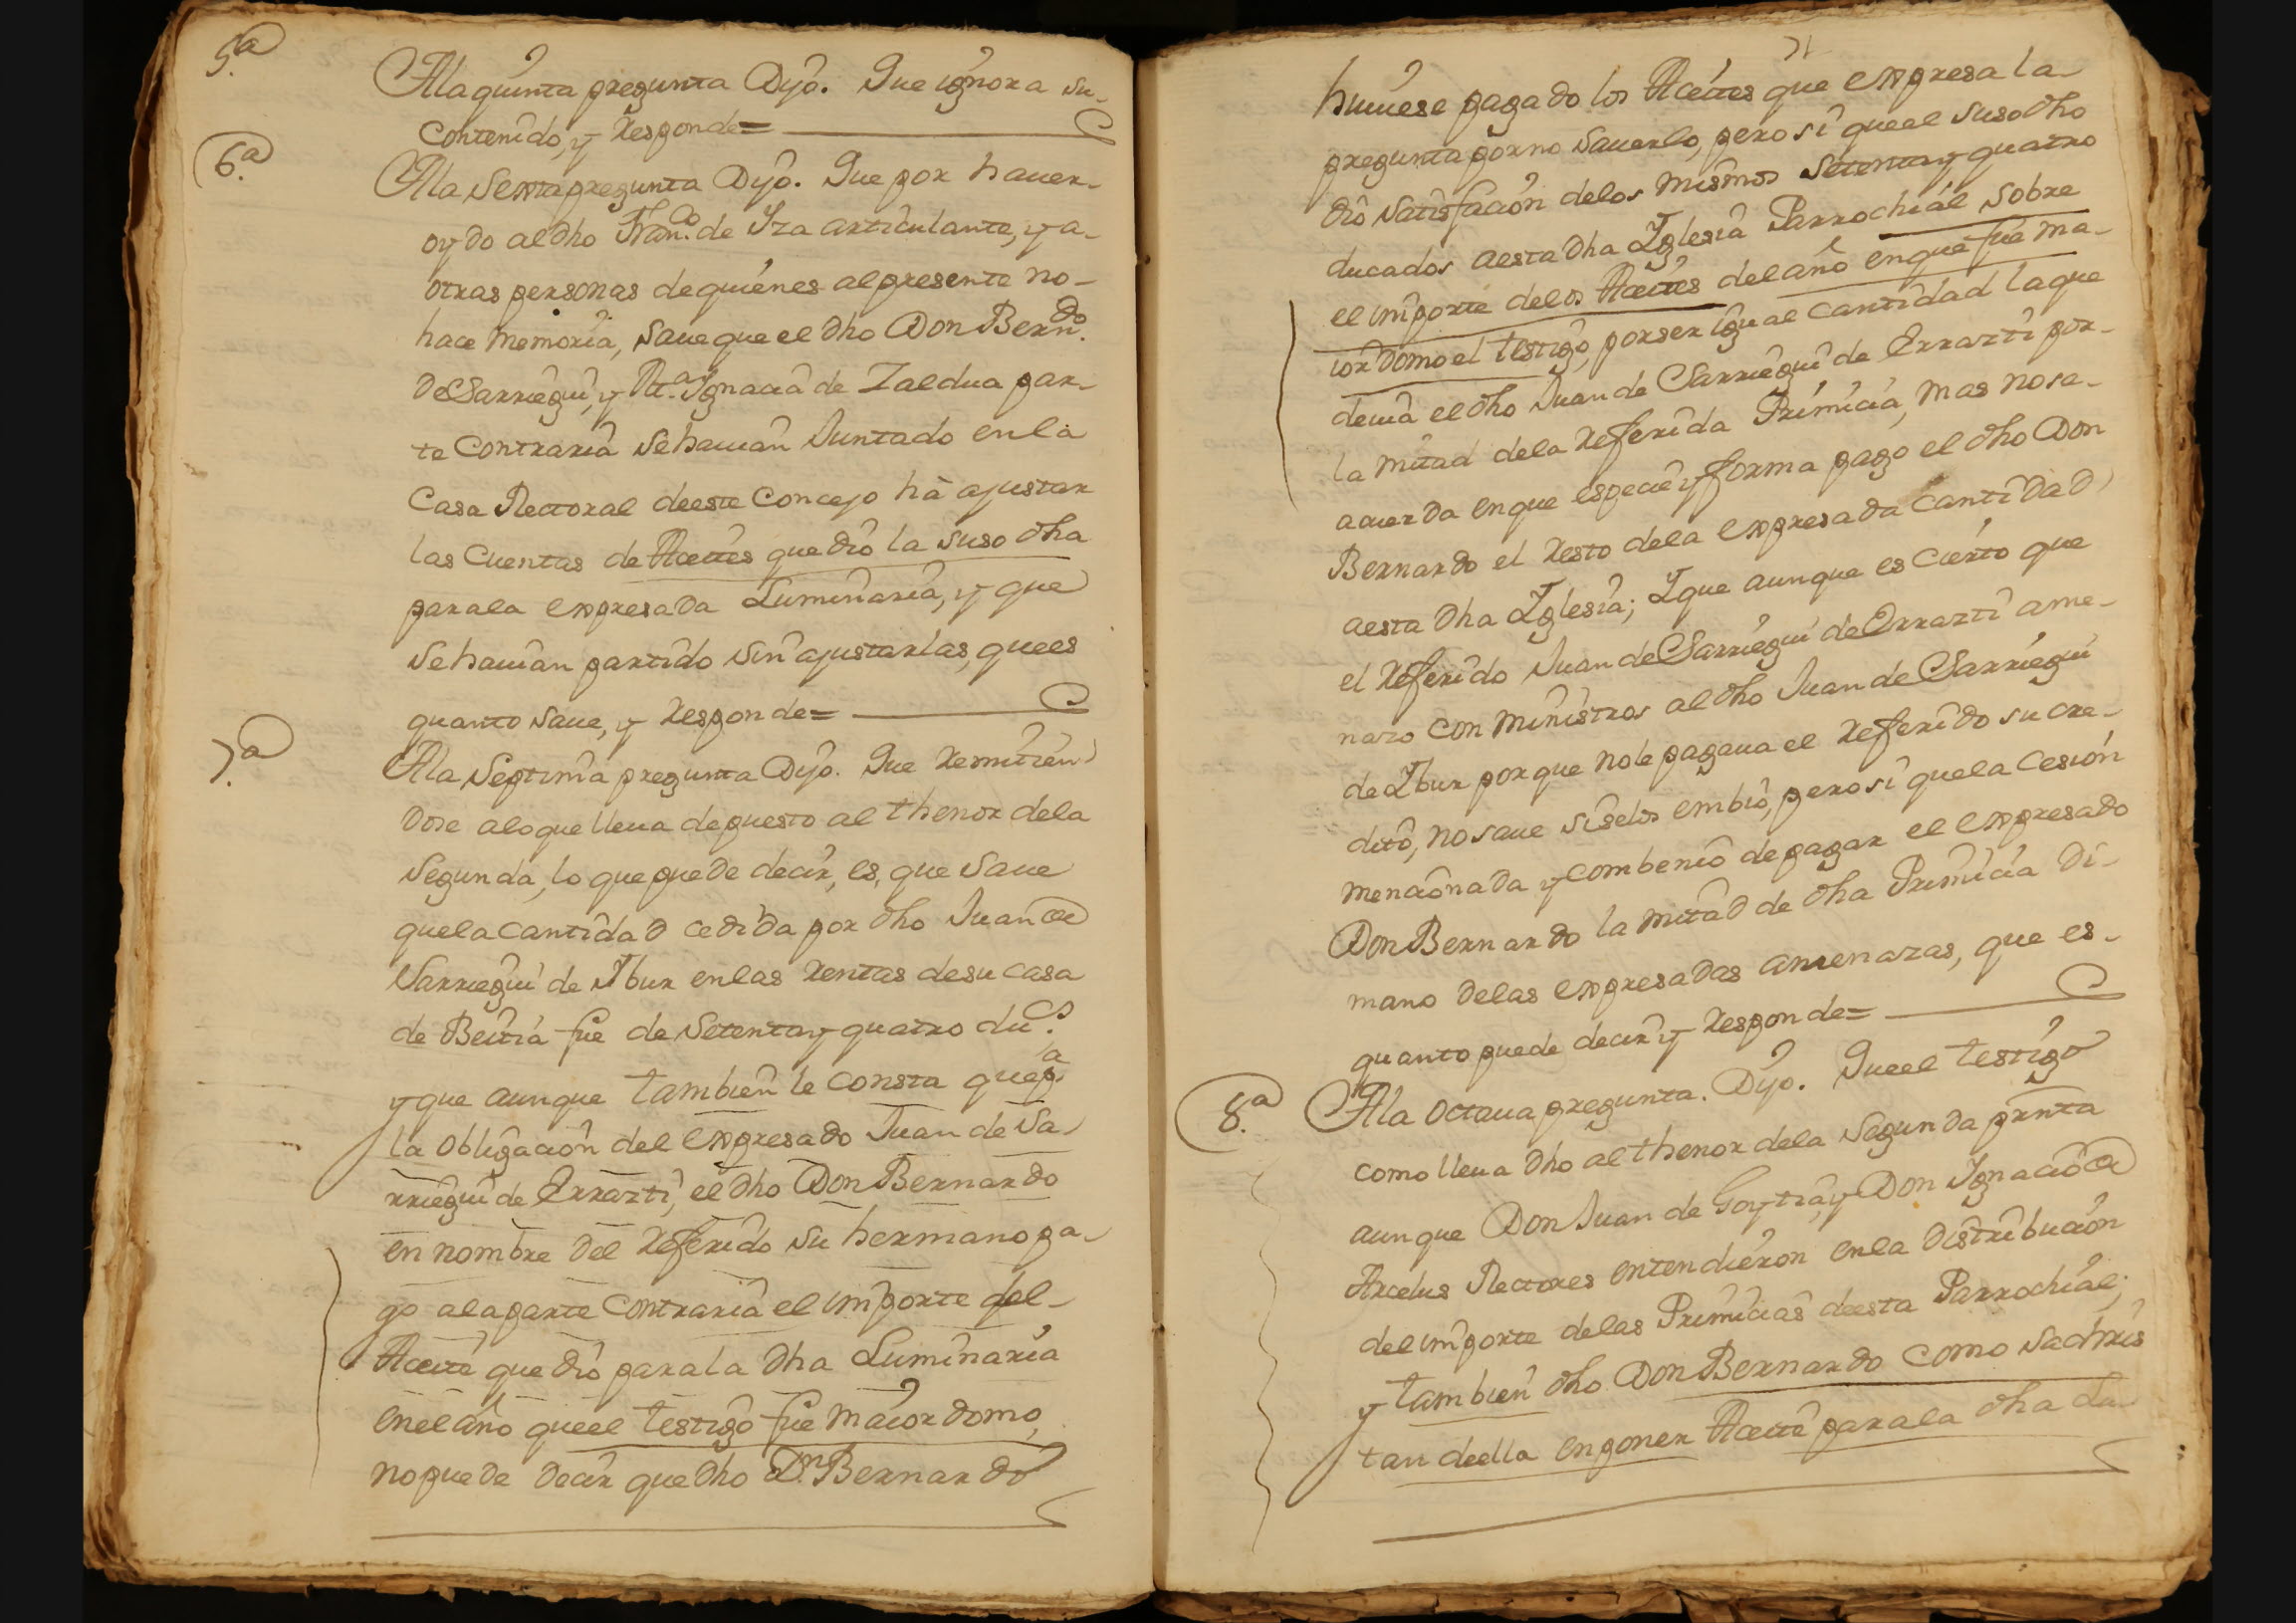 5.a
Ala quinta pregunta Dijo. Que ignora su-
contenido, y Responde=
6.a
Ala Sexta pregunta Dijo. Que por hauer-
oydo al dho Fran.co de Yza articulante, y a-
otras personas de quienes al presente no-
hace memoria, saue que el dho Don Bern.do
de Sarriegui, y M.a Ygnacia de Zaldua par-
te contraria se hauian Juntado en la
Casa Rectoral de este Concejo hà ajustar
las Cuentas de Aceites que dio la suso dha
para la expresada Luminaria, y que
se hauian partido sin ajustarlas, que es
quanto saue, y Responde=
7.a
Ala Septima pregunta Dijo. Que Remitien
dose alo que lleua depuesto al thenor dela
Segunda, lo que puede decir, es, que Saue
que la cantidad cedida por dho Juan de
Sarriegui de Ybur en las Rentas de su casa
de Beitia fue de Setenta y quatro du.s
y que aunque tambien le consta que p.a
la obligacion del expresado Juan de Sa
rriegui de Errazti, el dho Don Bernardo
en nombre del Referido su hermano pa-
go ala parte contraria el importe del-
Aceite que dio para la dha Luminaria
en el año que el testigo fue maiordomo,
no puede decir que dho D.n Bernardo
71
huuiese pagado los Aceites que expresa la-
pregunta por no sauerlo, pero si que el suso dho
dio satisfacion delos mismos setenta y quatro
ducados a esta dha Yglesia Parrochial sobre
el importe delos Aceites del año en que fue ma-
iordomo el testigo, por ser igual cantidad la que
deuia el dho Juan de Sarriegui de Errazti por-
la mitad dela Referida Primicia, mas no se-
acuerda en que especie y forma pago el dho Don
Bernardo el Resto dela expresada cantidad
a esta dha Yglesia; Y que aunque es cierto que
el Referido Juan de Sarriegui de Errazti ame-
nazo con ministros al dho Juan de Sarriegui
de Ybur por que no le pagaua el Referido su cre-
dito, no saue si selos embio, pero si que la Cesion
mencionada y combenio de pagar el expresado
Don Bernardo la mitad de dha Primicia di-
mano delas expresadas amenazas, que es-
quanto puede decir y Responde=
8.a
Ala octaua pregunta. Dijo. Que el testigo
como lleua dho al thenor dela segunda prñta
aunque Don Juan de Goytia, y Don Ygnacio de
Arcelus Rectores entendieron en la distribucion
del importe delas Primicias de esta Parrochial;
y tambien dho Don Bernardo como sachris
tan de ella en poner Aceite para la dha Lu-